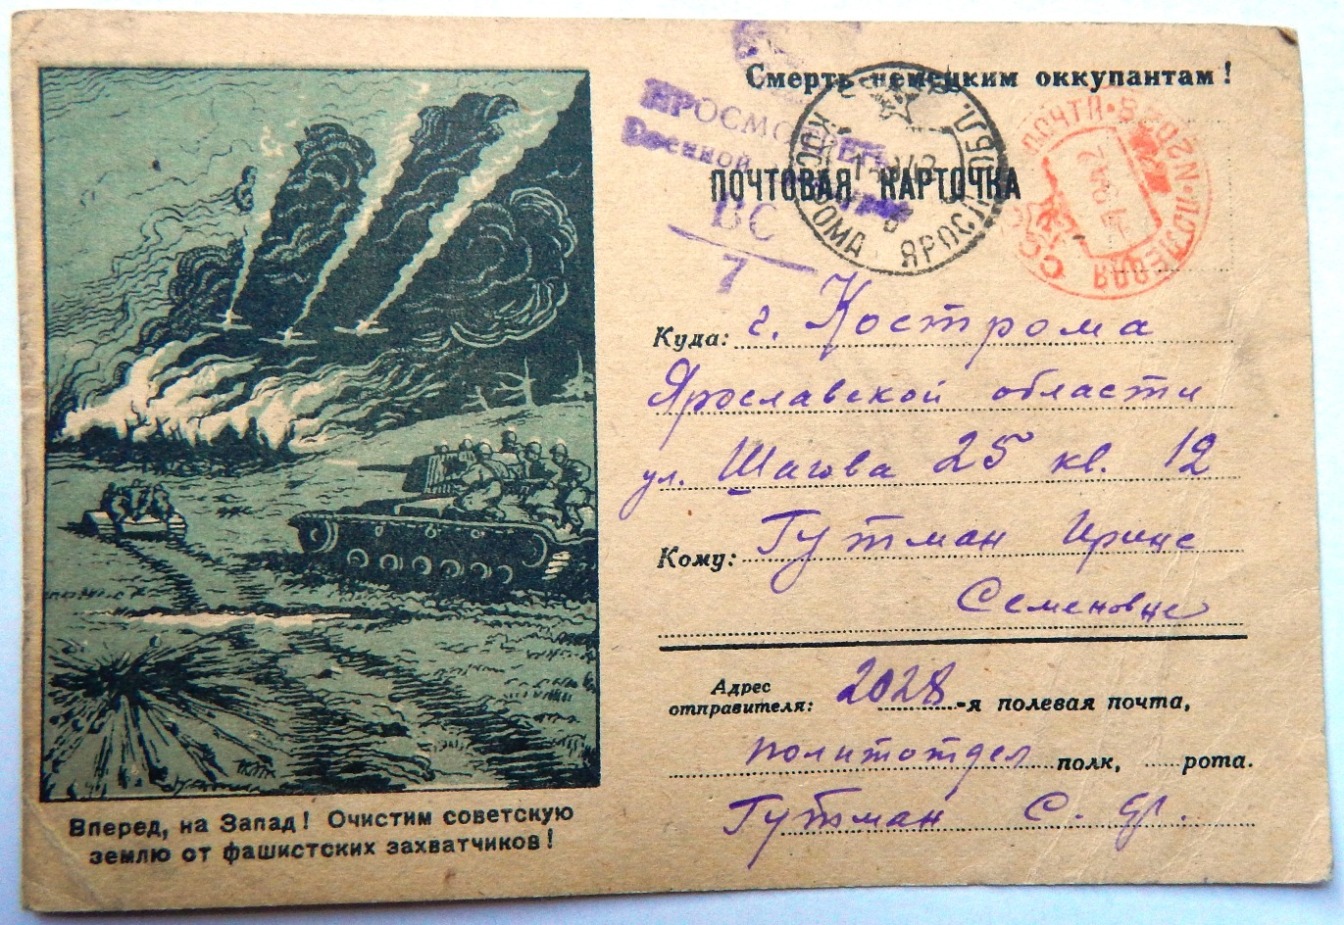 Смерть немецким оккупантам!
ПРОСМОТРЕНО
Военной
ВС
7
КОСТРОМА ЯРОСЛ. ОБЛ.
ПОЛЕВАЯ ПОЧТА
СССР
ПОЧТОВАЯ КАРТОЧКА
Куда: г. Кострома
Ярославской области
ул. Шагова 25 кв. 12
Кому: Гутман Ирине
Семеновне
Адрес
отправителя: 2028-я полевая почта,
политотдел полк, рота.
Гутман С.
Вперед, на Запад! Очистим советскую
землю от фашистских захватчиков!